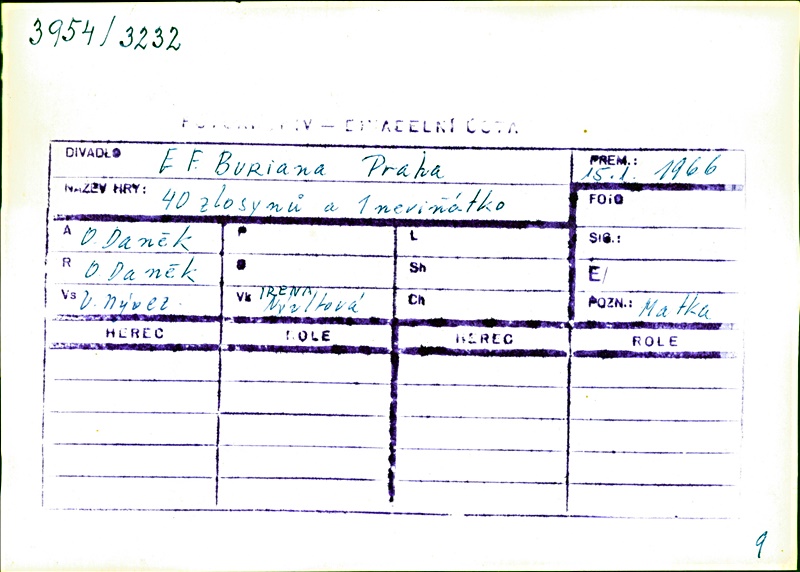 3954/3232
— DIVADELNÍ ÚSTAV
DIVADLO E F. BURIANA Praha PREM.: 15.1. 1966
NÁZEV HRY: 40 zlosynů a 1 neviňátko FOTO
A O. Daněk P L SIG.:
R O. Daněk Sh E/
Vs V. Nývlt Vk IRENA Nývltová Ch POZN.: Matka
HEREC ROLE HEREC ROLE
9